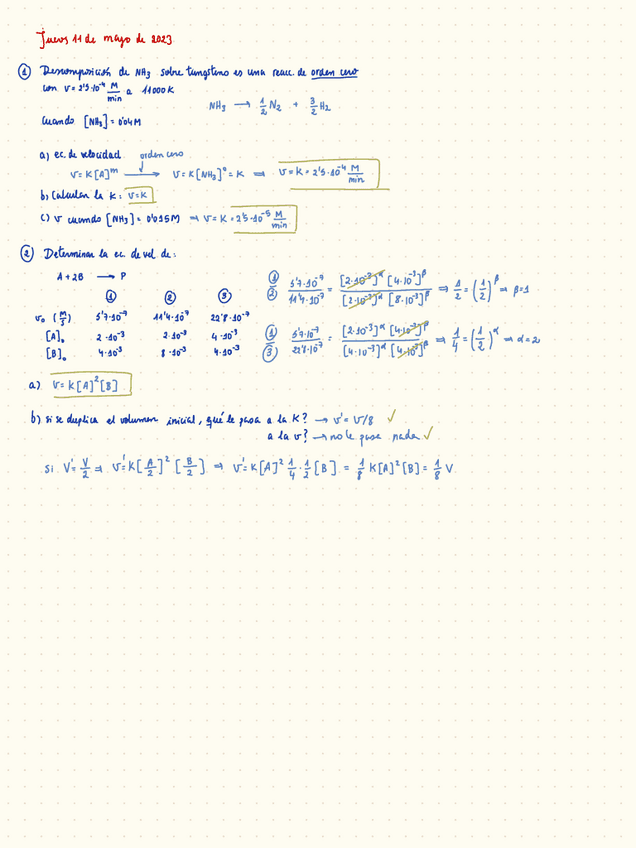 Jueves 11 de mayo de 2023
① Descomposición de NH₃ sobre tungsteno es una reacc. de orden cero
con v = 2'5·10⁻⁴ M/min a 11000K
NH₃ ⟶ 1/2 N₂ + 3/2 H₂
cuando [NH₃] = 0'04M
a) ec. de velocidad orden cero
v = K[A]ᵐ ⟶ v = K[NH₃]⁰ = K ⇒ v = K = 2'5·10⁻⁴ M/min
b) Calcular la K: v=K
c) v cuando [NH₃] = 0'015M ⇒ v = K = 2'5·10⁻⁵ M/min
② Determinar la ec. de vel. de:
A + 2B ⟶ P
① ② ③
v₀ (M/s) 5'7·10⁻⁷ 11'4·10⁻⁷ 22'8·10⁻⁷
[A]₀ 2·10⁻³ 2·10⁻³ 4·10⁻³
[B]₀ 4·10⁻³ 8·10⁻³ 4·10⁻³
①/② 5'7·10⁻⁷/11'4·10⁻⁷ = [2·10⁻³]^α [4·10⁻³]^β / [2·10⁻³]^α [8·10⁻³]^β ⇒ 1/2 = (1/2)^β ⇒ β=1
①/③ 5'7·10⁻⁷/22'8·10⁻⁷ = [2·10⁻³]^α [4·10⁻³]^β / [4·10⁻³]^α [4·10⁻³]^β ⇒ 1/4 = (1/2)^α ⇒ α=2
a) v = K[A]²[B]
b) si se duplica el volumen inicial, qué le pasa a la K? → v' = v/8 ✓
a la v? → no le pasa nada ✓
si V' = V/2 ⇒ v' = K[A/2]² [B/2] ⇒ v' = K[A]² 1/4 · 1/2 [B] = 1/8 K[A]²[B] = 1/8 v